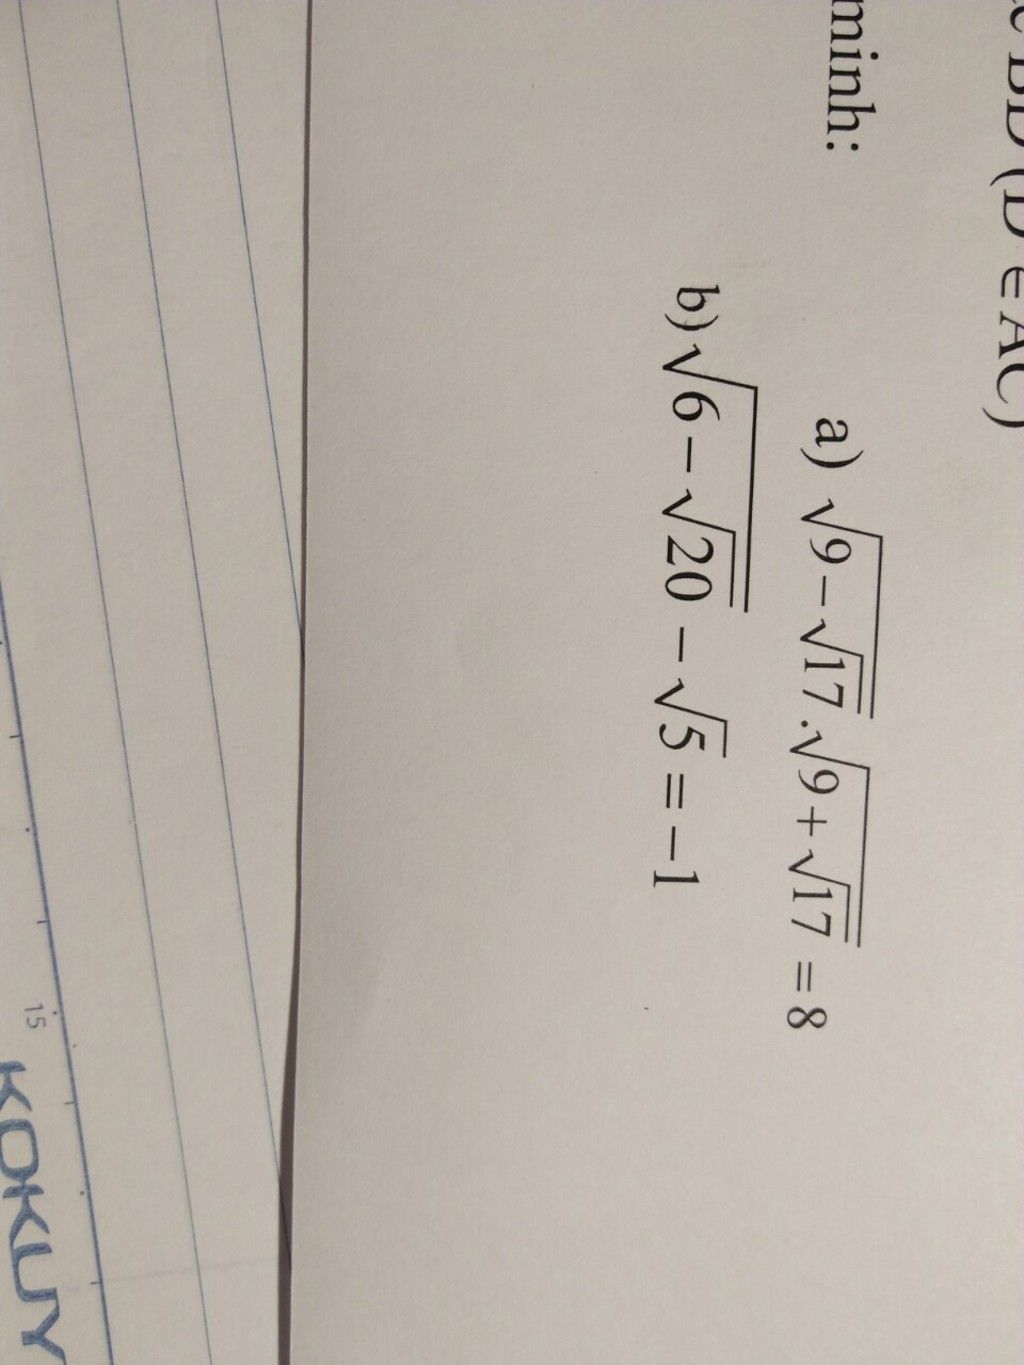 BD (D ∈ AC)
minh:
a) √(9 − √17) . √(9 + √17) = 8
b) √(6 − √20) − √5 = −1
15
KOKUY